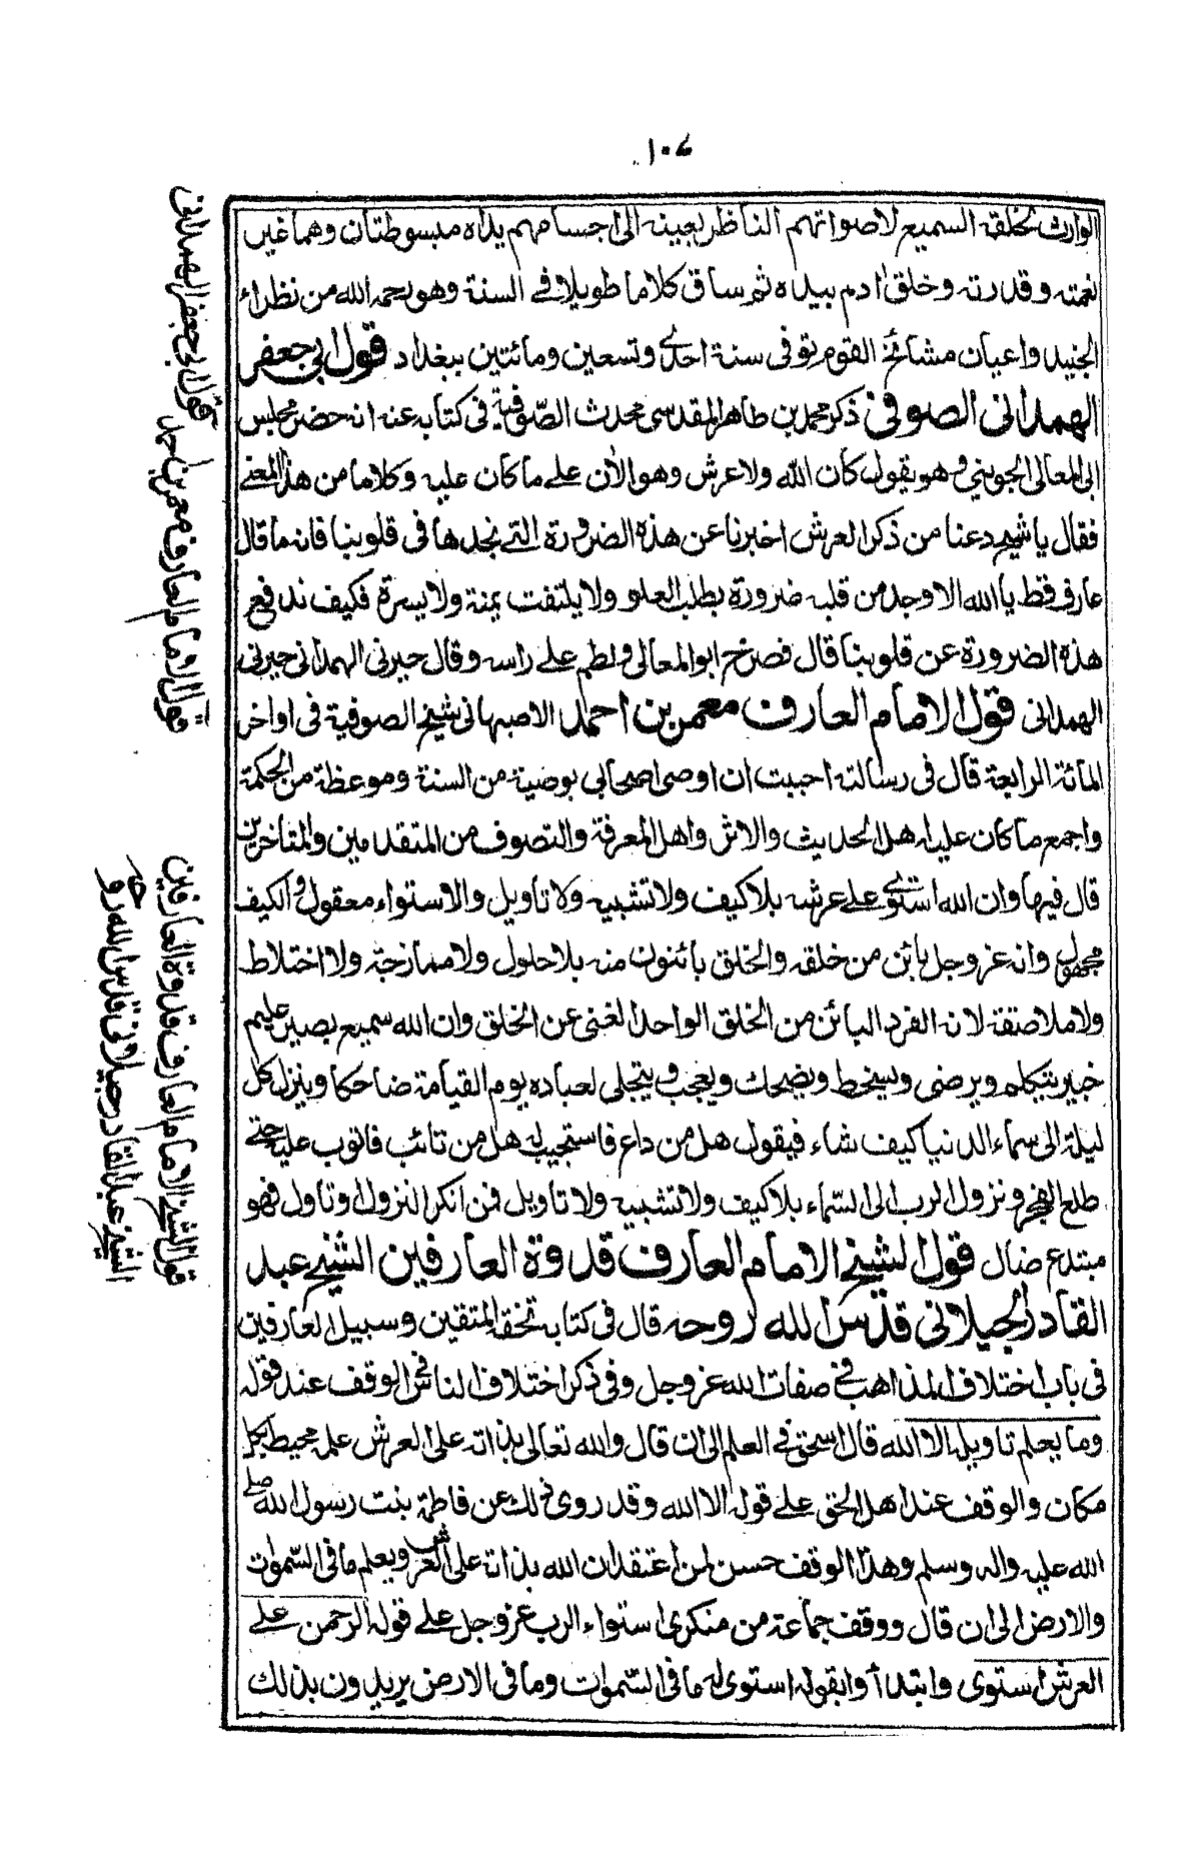 ١٠٧
الوارث لخلقه السميع لاصواتهم الناظر بعينه الى اجسامهم يداه مبسوطتان وهما غير
نعمته وقدرته وخلق ادم بيده ثم ساق كلاما طويلا في السنة وهو رحمه الله من نظراء
الجنيد واعيان مشائخ القوم توفى سنة احدى وتسعين ومائتين ببغداد قول ابي جعفر
الهمداني الصوفي ذكر محمد بن طاهر المقدسي محدث الصوفية في كتابه عنه انه حضر مجلس
ابى المعالى الجويني وهو يقول كان الله ولا عرش وهو الآن على ما كان عليه وكلاما من هذا المعنى
فقال يا شيخ دعنا من ذكر العرش اخبرنا عن هذه الضرورة التى نجدها فى قلوبنا فانه ما قال
عارف قط يا الله الا وجد من قلبه ضرورة بطلب العلو ولا يلتفت يمنة ولا يسرة فكيف ندفع
هذه الضرورة عن قلوبنا قال فصرخ ابو المعالى ولطم على راسه وقال حيرنى الهمدانى حيرنى
الهمدانى قول الامام العارف معمر بن احمد الاصبهانى شيخ الصوفية فى اواخر
المائة الرابعة قال فى رسالته احببت ان اوصى اصحابى بوصية من السنة وموعظة من الحكمة
واجمع ما كان عليه اهل الحديث والاثر واهل المعرفة والتصوف من المتقدمين والمتاخرين
قال فيها وان الله استوى على عرشه بلا كيف ولا تشبيه ولا تاويل والاستواء معقول والكيف
مجهول وانه عز وجل بائن من خلقه والخلق بائنون منه بلا حلول ولا ممازجة ولا اختلاط
ولا ملاصقة لانه الفرد البائن من الخلق الواحد الغنى عن الخلق وان الله سميع بصير عليم
خبير يتكلم ويرضى ويسخط ويضحك ويعجب ويتجلى لعباده يوم القيامة ضاحكا وينزل كل
ليلة الى سماء الدنيا كيف شاء فيقول هل من داع فاستجيب له هل من تائب فاتوب عليه حتى
طلع الفجر ونزول الرب الى السماء بلا كيف ولا تشبيه ولا تاويل فمن انكر النزول او تاول فهو
مبتدع ضال قول الشيخ الامام العارف قدوة العارفين الشيخ عبد
القادر الجيلانى قدس الله روحه قال فى كتابه تحفة المتقين وسبيل العارفين
فى باب اختلاف المذاهب فى صفات الله عز وجل وفى ذكر اختلاف الناس فى الوقف عند قوله
وما يعلم تاويله الا الله قال اسحق فى العلم الى ان قال والله تعالى بذاته على العرش علمه محيط بكل
مكان والوقف عند اهل الحق على قوله الا الله وقد روى ذلك عن فاطمة بنت رسول الله صلى
الله عليه واله وسلم وهذا الوقف حسن لمن اعتقد ان الله بذاته على العرش ويعلم ما فى السموات
والارض الى ان قال ووقف جماعة من منكرى استواء الرب عز وجل على قوله الرحمن على
العرش استوى وابتدأوا بقوله استوى له ما فى السموات وما فى الارض يريدون بذلك
قول ابى جعفر الهمدانى
قول الامام العارف معمر بن احمد
قول الشيخ الامام العارف قدوة العارفين
الشيخ عبد القادر جيلانى قدس الله روحه